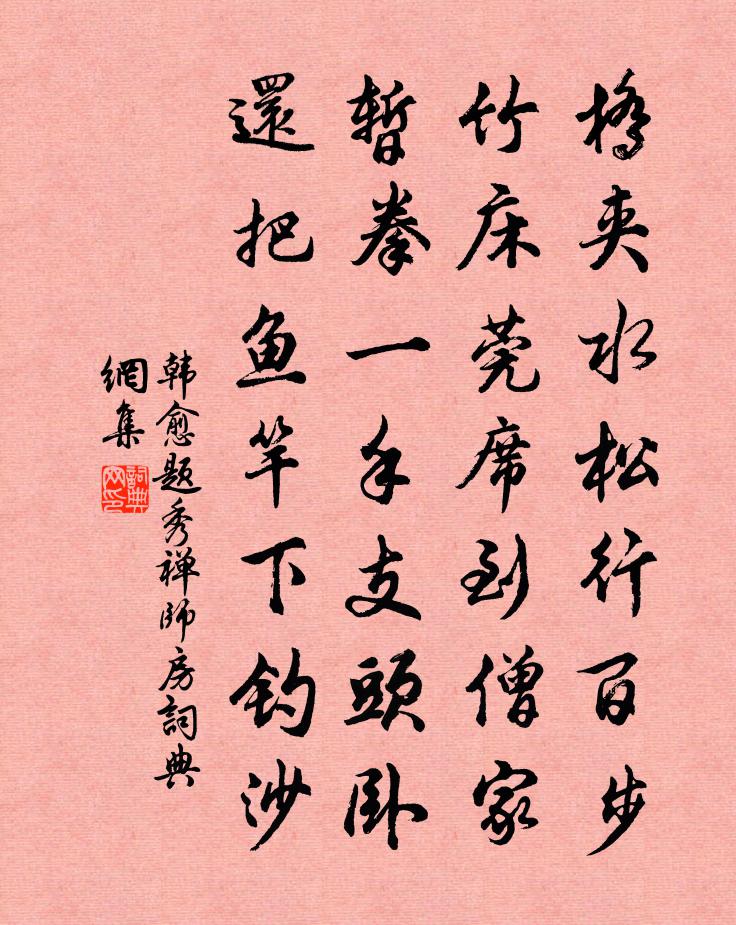 橋夾水松行百步
竹床莞席到僧家
暫拳一手支頭臥
還把鱼竿下钓沙
韩愈题秀禅师房詞典
網集
詞典
网印